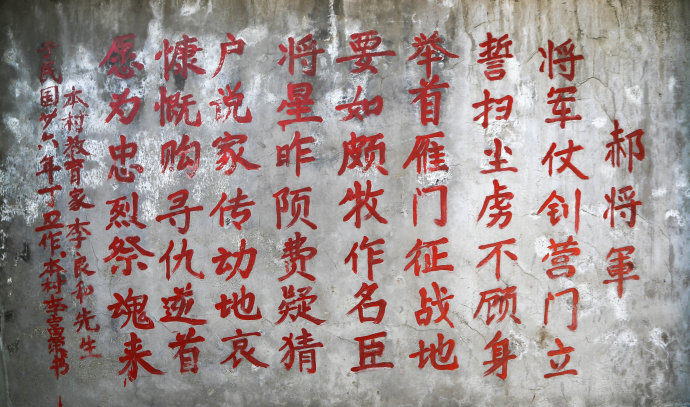 郝将軍
将军仗钊营门立
誓扫尘虏不顾身
举首雁门征战地
要如颇牧作名臣
将星昨陨费疑猜
户说家传动地哀
慷慨购寻仇逆首
愿为忠烈祭魂来
本村教育家李良和先生
民国廿六年丁卫作、本村李 书